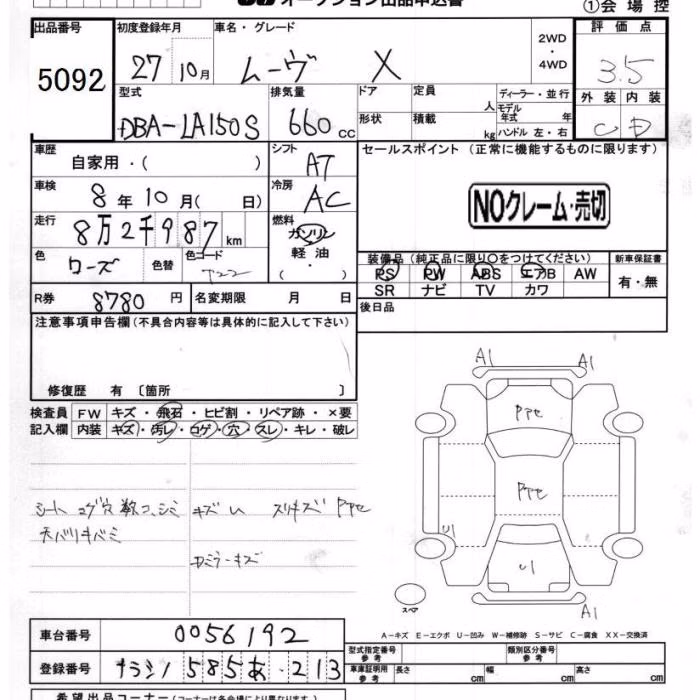 オークション出品申込書 ①会場控
出品番号 5092
初度登録年月 27年 10月
車名・グレード ムーヴ X
2WD・4WD
評価点 3.5
外装 C 内装 D
型式 DBA-LA150S
排気量 660cc
ドア 形状
定員 人
積載 kg
ディーラー・並行
モデル年式 年
ハンドル 左・右
車歴 自家用・( )
シフト AT
セールスポイント(正常に機能するものに限ります)
NOクレーム・売切
車検 8年10月( 日)
冷房 AC
走行 8万2千987km
燃料 ガソリン 軽油 ・( )
色 ローズ 色替 色コード T22
装備品(純正品に限り○をつけてください)
PS PW ABS エアB AW
SR ナビ TV カワ
新車保証書 有・無
R券 8780円
名変期限 月 日
後日品
注意事項申告欄(不具合内容等は具体的に記入して下さい)
修復歴 有〔箇所 〕
検査員記入欄
FW キズ・飛石・ヒビ割・リペア跡・×要
内装 キズ・汚レ・コゲ・穴・スレ・キレ・破レ
シート コゲ穴
天バリキバミ
A1 A1
U1 U1
A1
スペア
A-キズ E-エクボ U-凹み W-補修跡 S-サビ C-腐食 XX-交換済
車台番号 0056192
登録番号 ナラシノ 585 あ ・213
型式指定番号 参考
類別区分番号 参考
車庫証明用 参考 長さ cm 幅 cm 高さ cm
希望出品コーナー(コーナーは各会場により異なります)